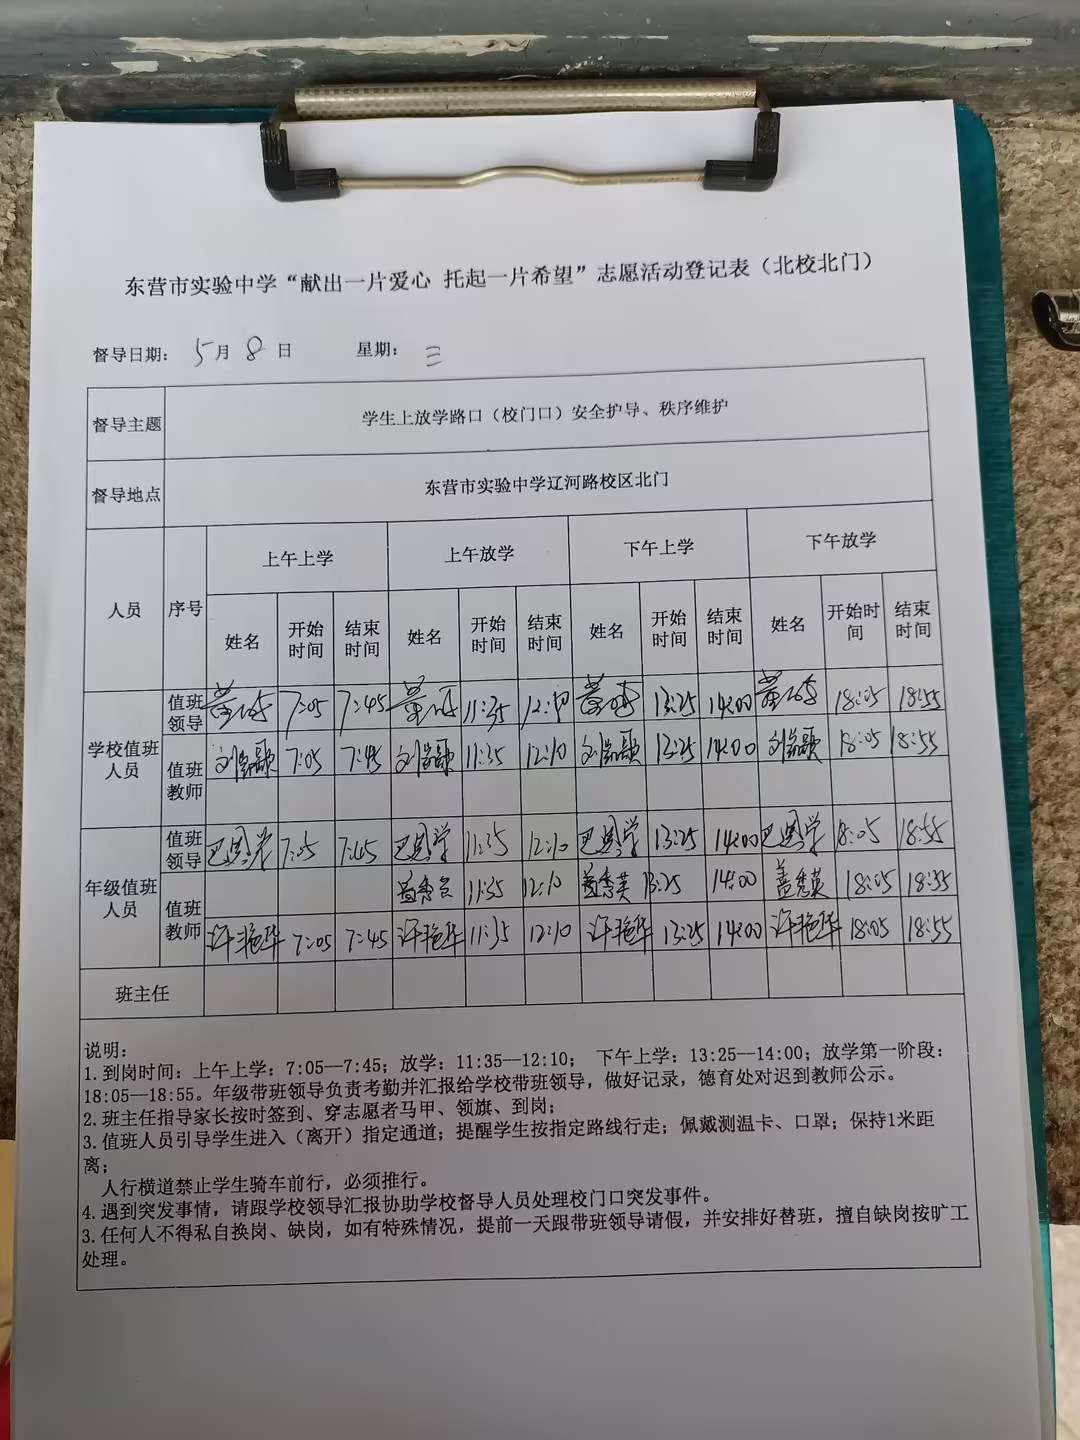 东营市实验中学“献出一片爱心 托起一片希望”志愿活动登记表（北校北门）
督导日期： 5月 8 日 星期： 三
督导主题 学生上放学路口（校门口）安全护导、秩序维护
督导地点 东营市实验中学辽河路校区北门
人员 序号 上午上学 上午放学 下午上学 下午放学
姓名 开始时间 结束时间 姓名 开始时间 结束时间 姓名 开始时间 结束时间 姓名 开始时间 结束时间
学校值班人员 值班领导 7:05 7:45 11:35 12:10 13:25 14:00 18:05 18:55
值班教师 7:05 7:45 11:35 12:10 13:25 14:00 18:05 18:55
年级值班人员 值班领导 7:05 7:45 11:35 12:10 13:25 14:00 18:05 18:55
值班教师 11:35 12:10 盖秀英 13:25 14:00 盖秀英 18:05 18:55
许艳华 7:05 7:45 许艳华 11:35 12:10 许艳华 13:25 14:00 许艳华 18:05 18:55
班主任
说明：
1.到岗时间：上午上学：7:05—7:45；放学：11:35—12:10； 下午上学：13:25—14:00；放学第一阶段：
18:05—18:55。年级带班领导负责考勤并汇报给学校带班领导，做好记录，德育处对迟到教师公示。
2.班主任指导家长按时签到、穿志愿者马甲、领旗、到岗；
3.值班人员引导学生进入（离开）指定通道；提醒学生按指定路线行走；佩戴测温卡、口罩；保持1米距
离；
人行横道禁止学生骑车前行，必须推行。
4.遇到突发事情，请跟学校领导汇报协助学校督导人员处理校门口突发事件。
3.任何人不得私自换岗、缺岗，如有特殊情况，提前一天跟带班领导请假，并安排好替班，擅自缺岗按旷工
处理。